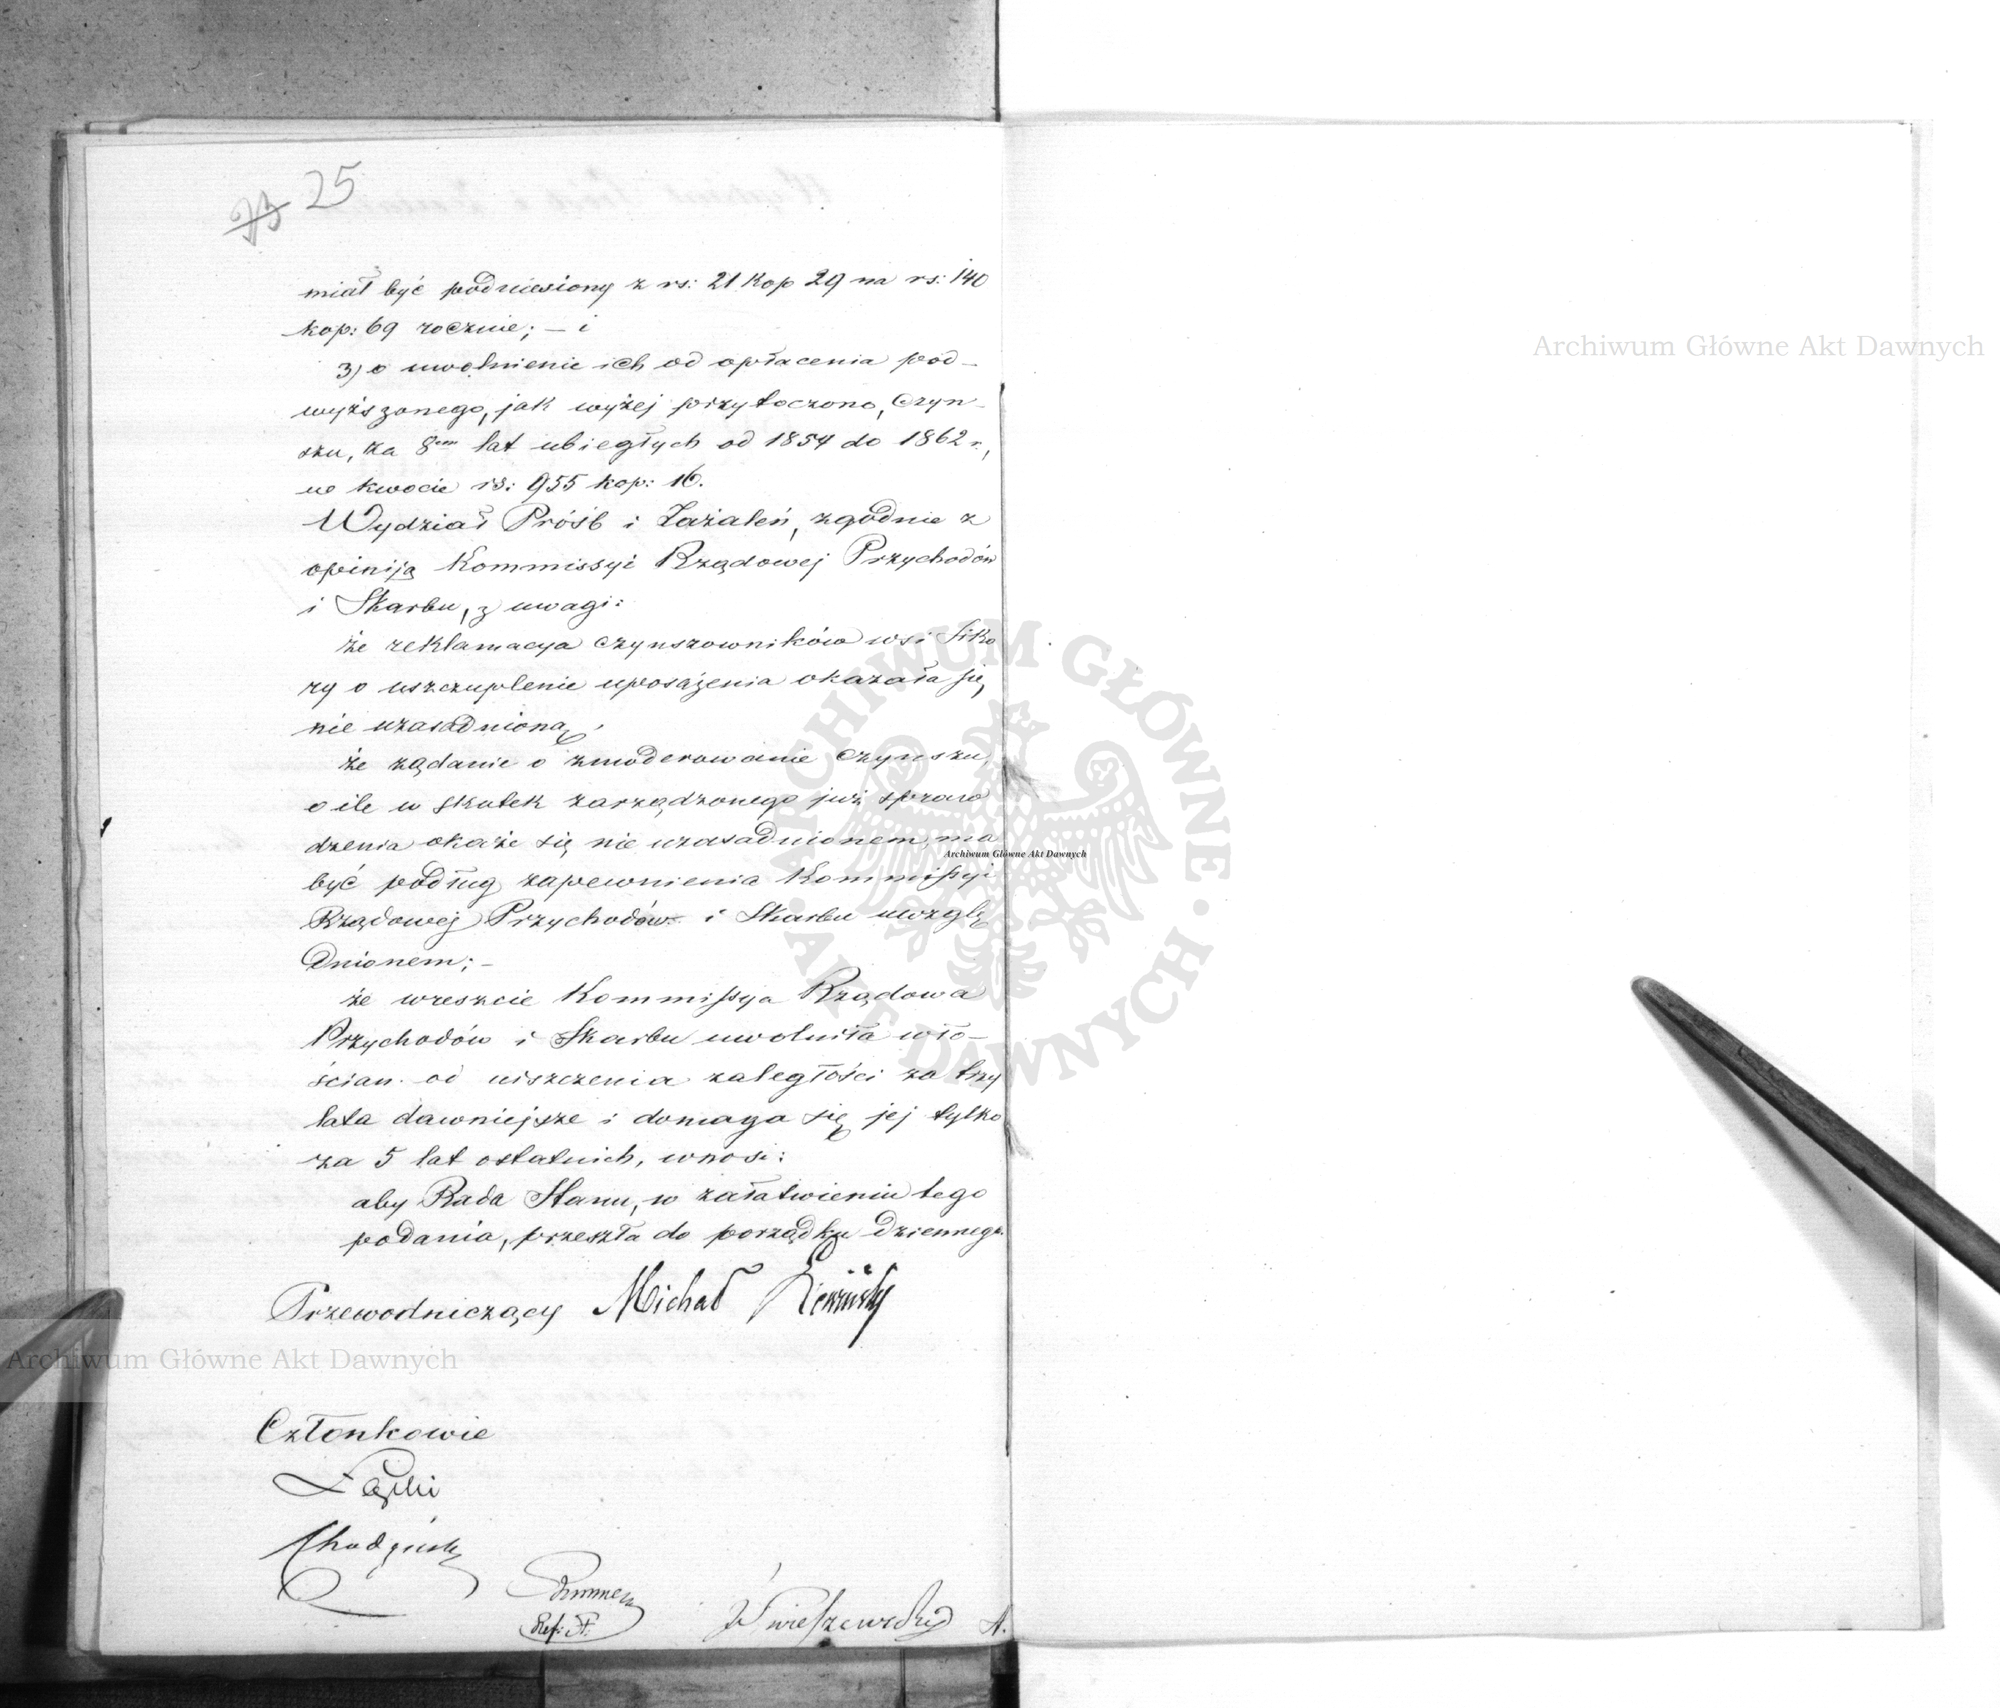 25
miał być podniesiony z rs: 21 kop 29 na rs: 140
kop: 69 rocznie; – i
3) o uwolnienie ich od opłacenia pod–
wyższonego, jak wyżej przytoczono, czyn–
szu, za 8em lat ubiegłych od 1854 do 1862 r.,
w kwocie rs: 955 kop: 16.
Wydział Próśb i Zażaleń, zgodnie z
opiniją Kommissyi Rządowej Przychodów
i Skarbu, z uwagi:
że reklamacya czynszowników wsi Siko
ry o uszczuplenie uposażenia okazała się
nie uzasadnioną;
że żądanie o zmoderowanie czynszu,
o ile w skutek zarządzonego już spraw
dzenia okaże się nie uzasadnionem, ma
być podług zapewnienia Kommissyi
Rządowej Przychodów i Skarbu uwzglę
dnionem; –
że wreszcie Kommissya Rządowa
Przychodów i Skarbu uwolniła wło–
ścian od uiszczenia zaległości za trzy
lata dawniejsze i domaga się jej tylko
za 5 lat ostatnich, wnosi:
aby Rada Stanu, w załatwieniu tego
podania, przeszła do porządku dziennego.
Przewodniczący Michał
Członkowie
Ref: St:
Archiwum Główne Akt Dawnych
Archiwum Główne Akt Dawnych
Archiwum Główne Akt Dawnych
ARCHIWUM GŁÓWNE · AKT DAWNYCH ·